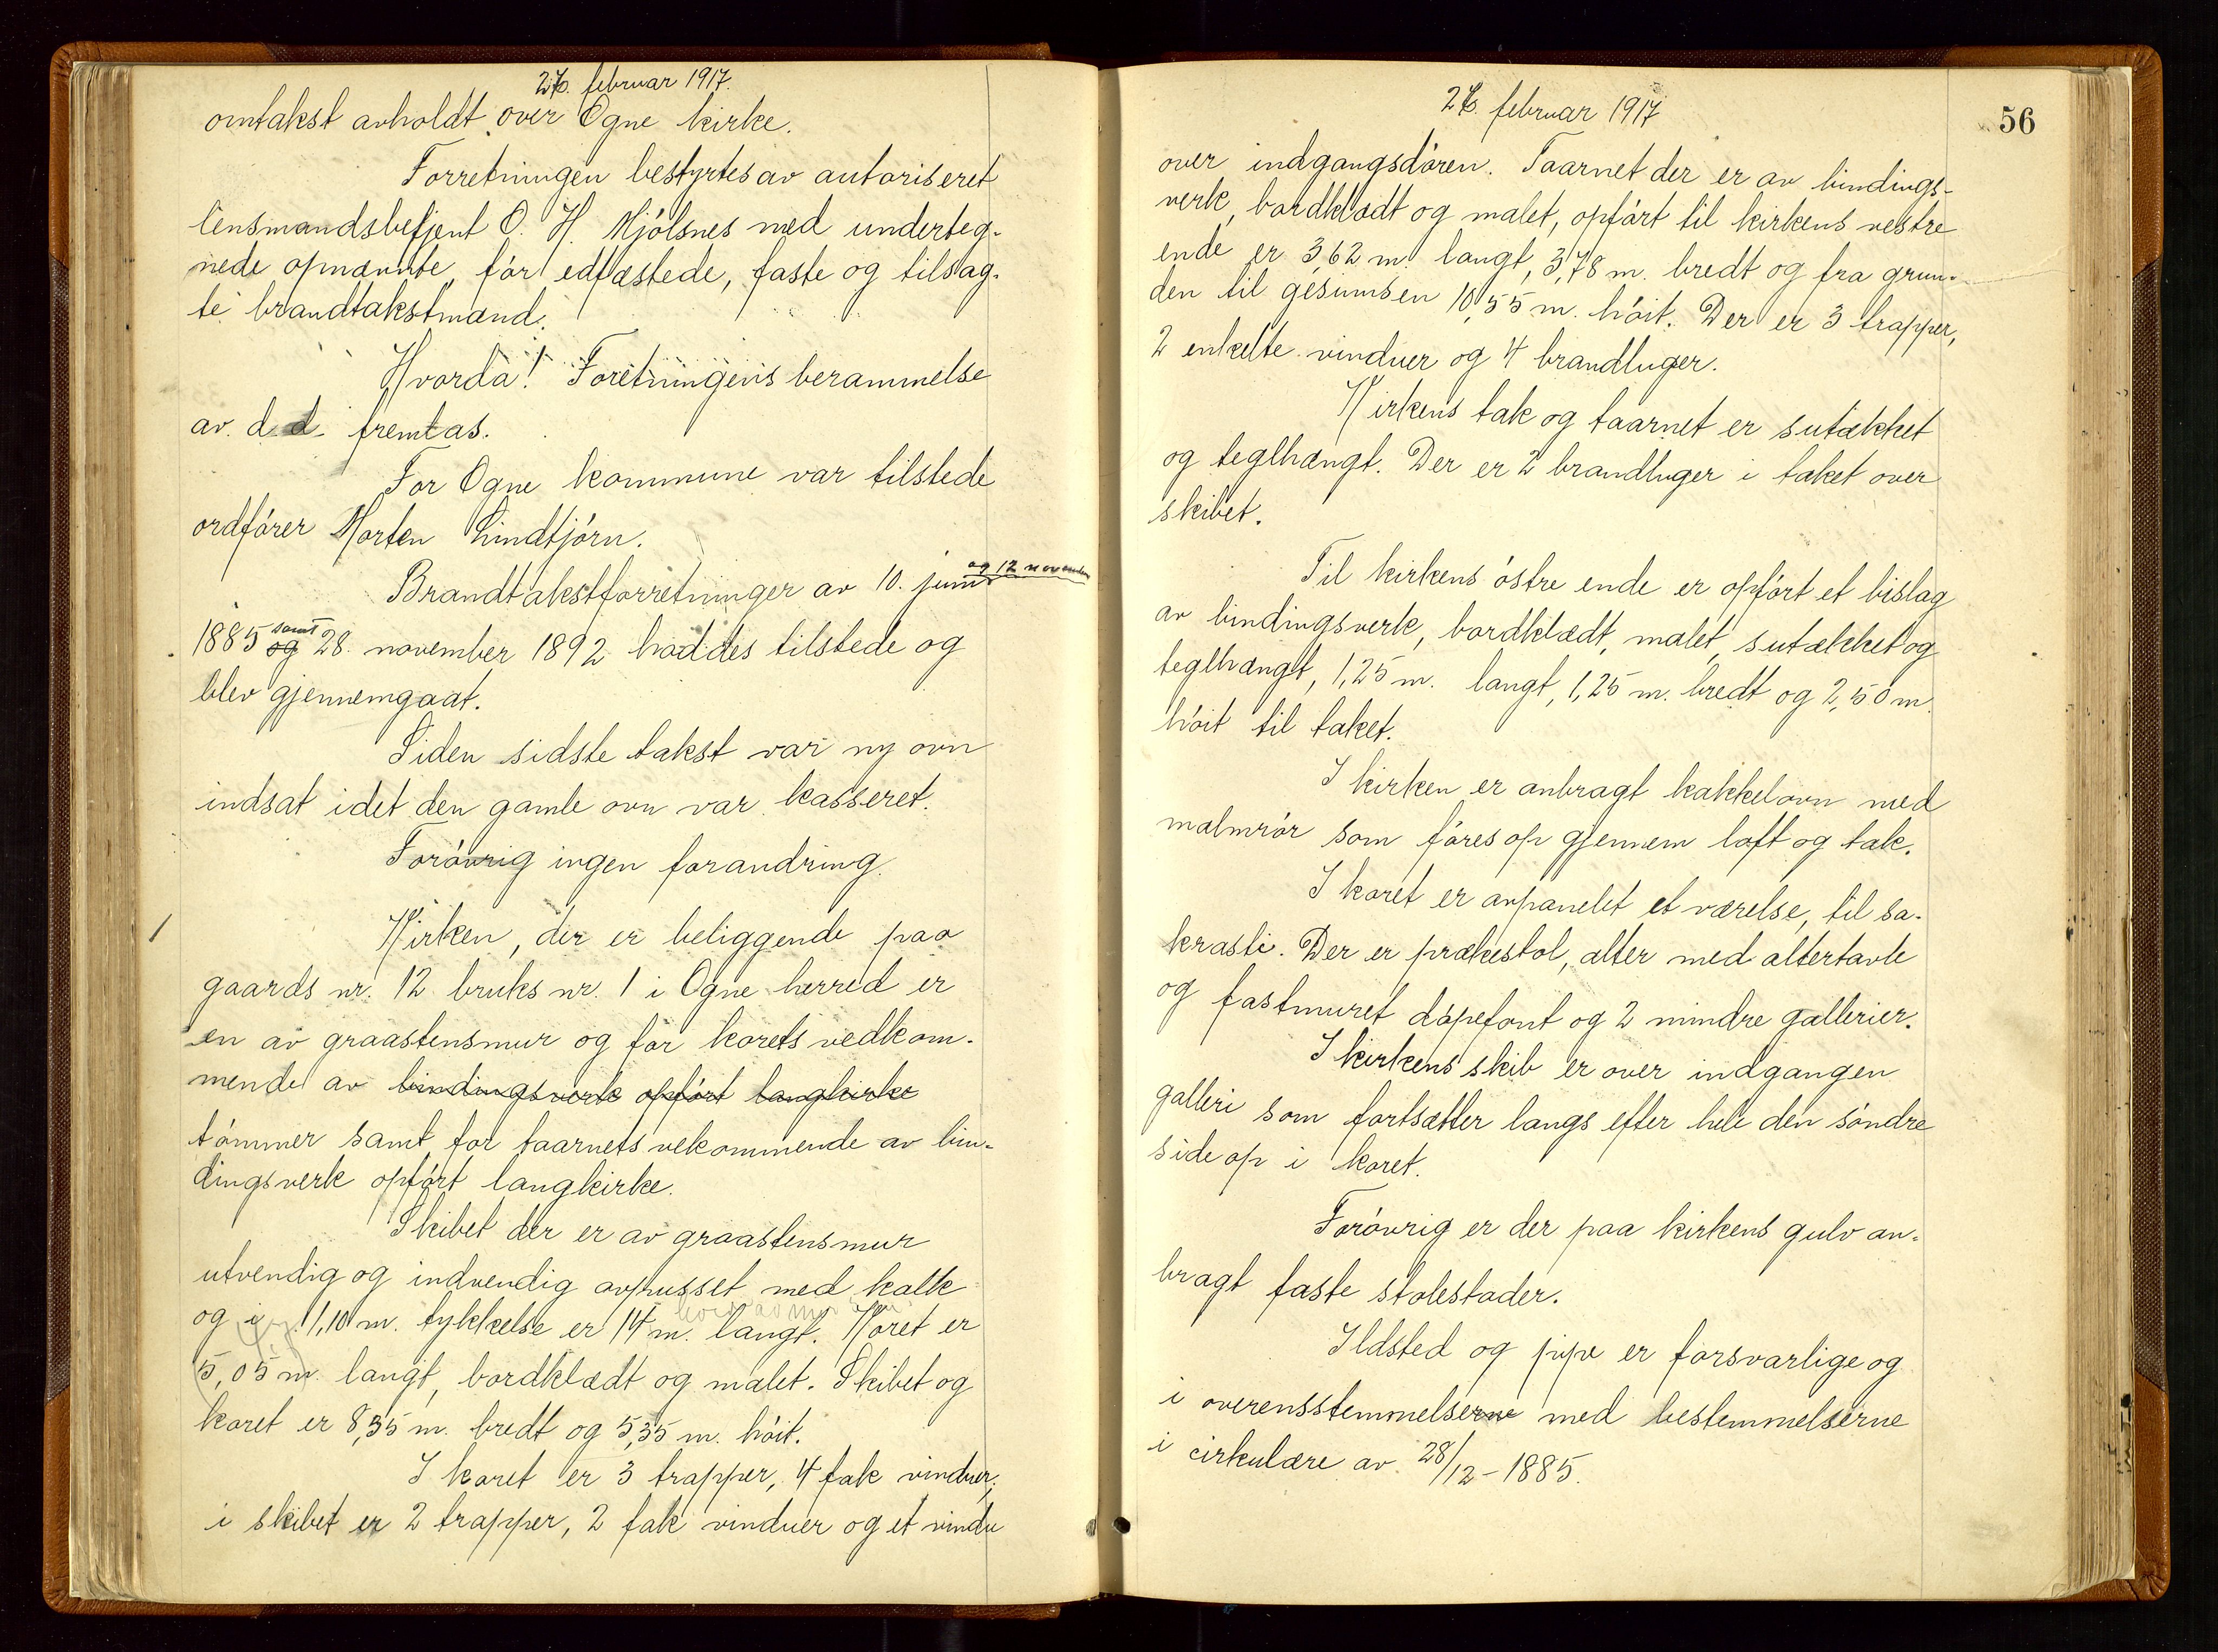 26. februar 1917.
omtakst avholdt over Ogne kirke.
Forretningen bestyrtes av autoriseret
lensmandsbetjent O. H. Mjölsnes med underteg-
nede opnævnte, för edfæstede, faste og tilsag-
te brandtakstmænd.
Hvorda! Foretningens berammelse
av d. d. fremlas.
For Ogne kommune var tilstede
ordförer Morten Lindtjörn.
og 12 november
Brandtakstforretninger av 10. juni
samt
1885 og 28. november 1892 haddes tilstede og
blev gjennemgaat.
Siden sidste takst var ny ovn
indsat idet den gamle ovn var kasseret.
Forövrig ingen forandring.
Kirken, der er beliggende paa
gaards nr. 12 bruks nr. 1 i Ogne herred er
en av graastensmur og for korets vedkom-
mende av bindingsverk opfört langkirke
tömmer samt for taarnets vekommende av bin-
dingsverk opfört langkirke.
Skibet der er av graastensmur
utvendig og indvendig avpusset med kalk
og i 1,10 m. tykkelse er 14 m. langt. Koret er
5,05 m. langt, bordklædt og malet. Skibet og
koret er 8,35 m. bredt og 5,35 m. höit.
I koret er 3 trapper, 4 fak vinduer,
i skibet er 2 trapper, 2 fak vinduer og et vindu
26. februar 1917
56
over indgangsdören. Taarnet der er av bindings-
verk, bordklædt og malet, opfört til kirkens vestre
ende er 3,62 m. langt, 3,78 m. bredt og fra grun-
den til gesimsen 10,55 m. höit. Der er 3 trapper,
2 enkelte vinduer og 4 brandluger.
Kirkens tak og taarnet er sutækket
og teglhængt. Der er 2 brandluger i taket over
skibet.
Til kirkens östre ende er opfört et bislag
av bindingsverk, bordklædt, malet, sutækket og
teglhængt, 1,25 m. langt, 1,25 m. bredt og 2,50 m.
höit til taket.
I kirken er anbragt kakkelovn med
malmrör som föres op gjennem loft og tak.
I koret er avpanelet et værelse, til sa-
krasti. Der er prækestol, alter med altertavle
og fastmuret döpefont og 2 mindre gallerier.
I kirkens skib er over indgangen
galleri som fortsætter langs efter hele den söndre
side op i koret.
Forövrig er der paa kirkens gulv an-
bragt faste stolestader.
Ildsted og pipe er forsvarlige og
i overensstemmelserne med bestemmelserne
i cirkulære av 28/12-1885.